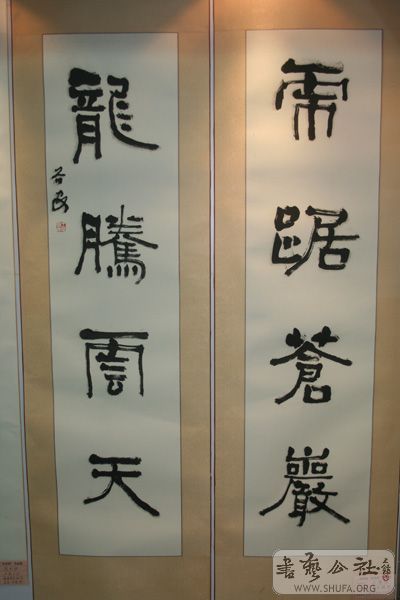 虎踞蒼巖
龍騰雲天
書藝公社
WWW.SHUFA.ORG